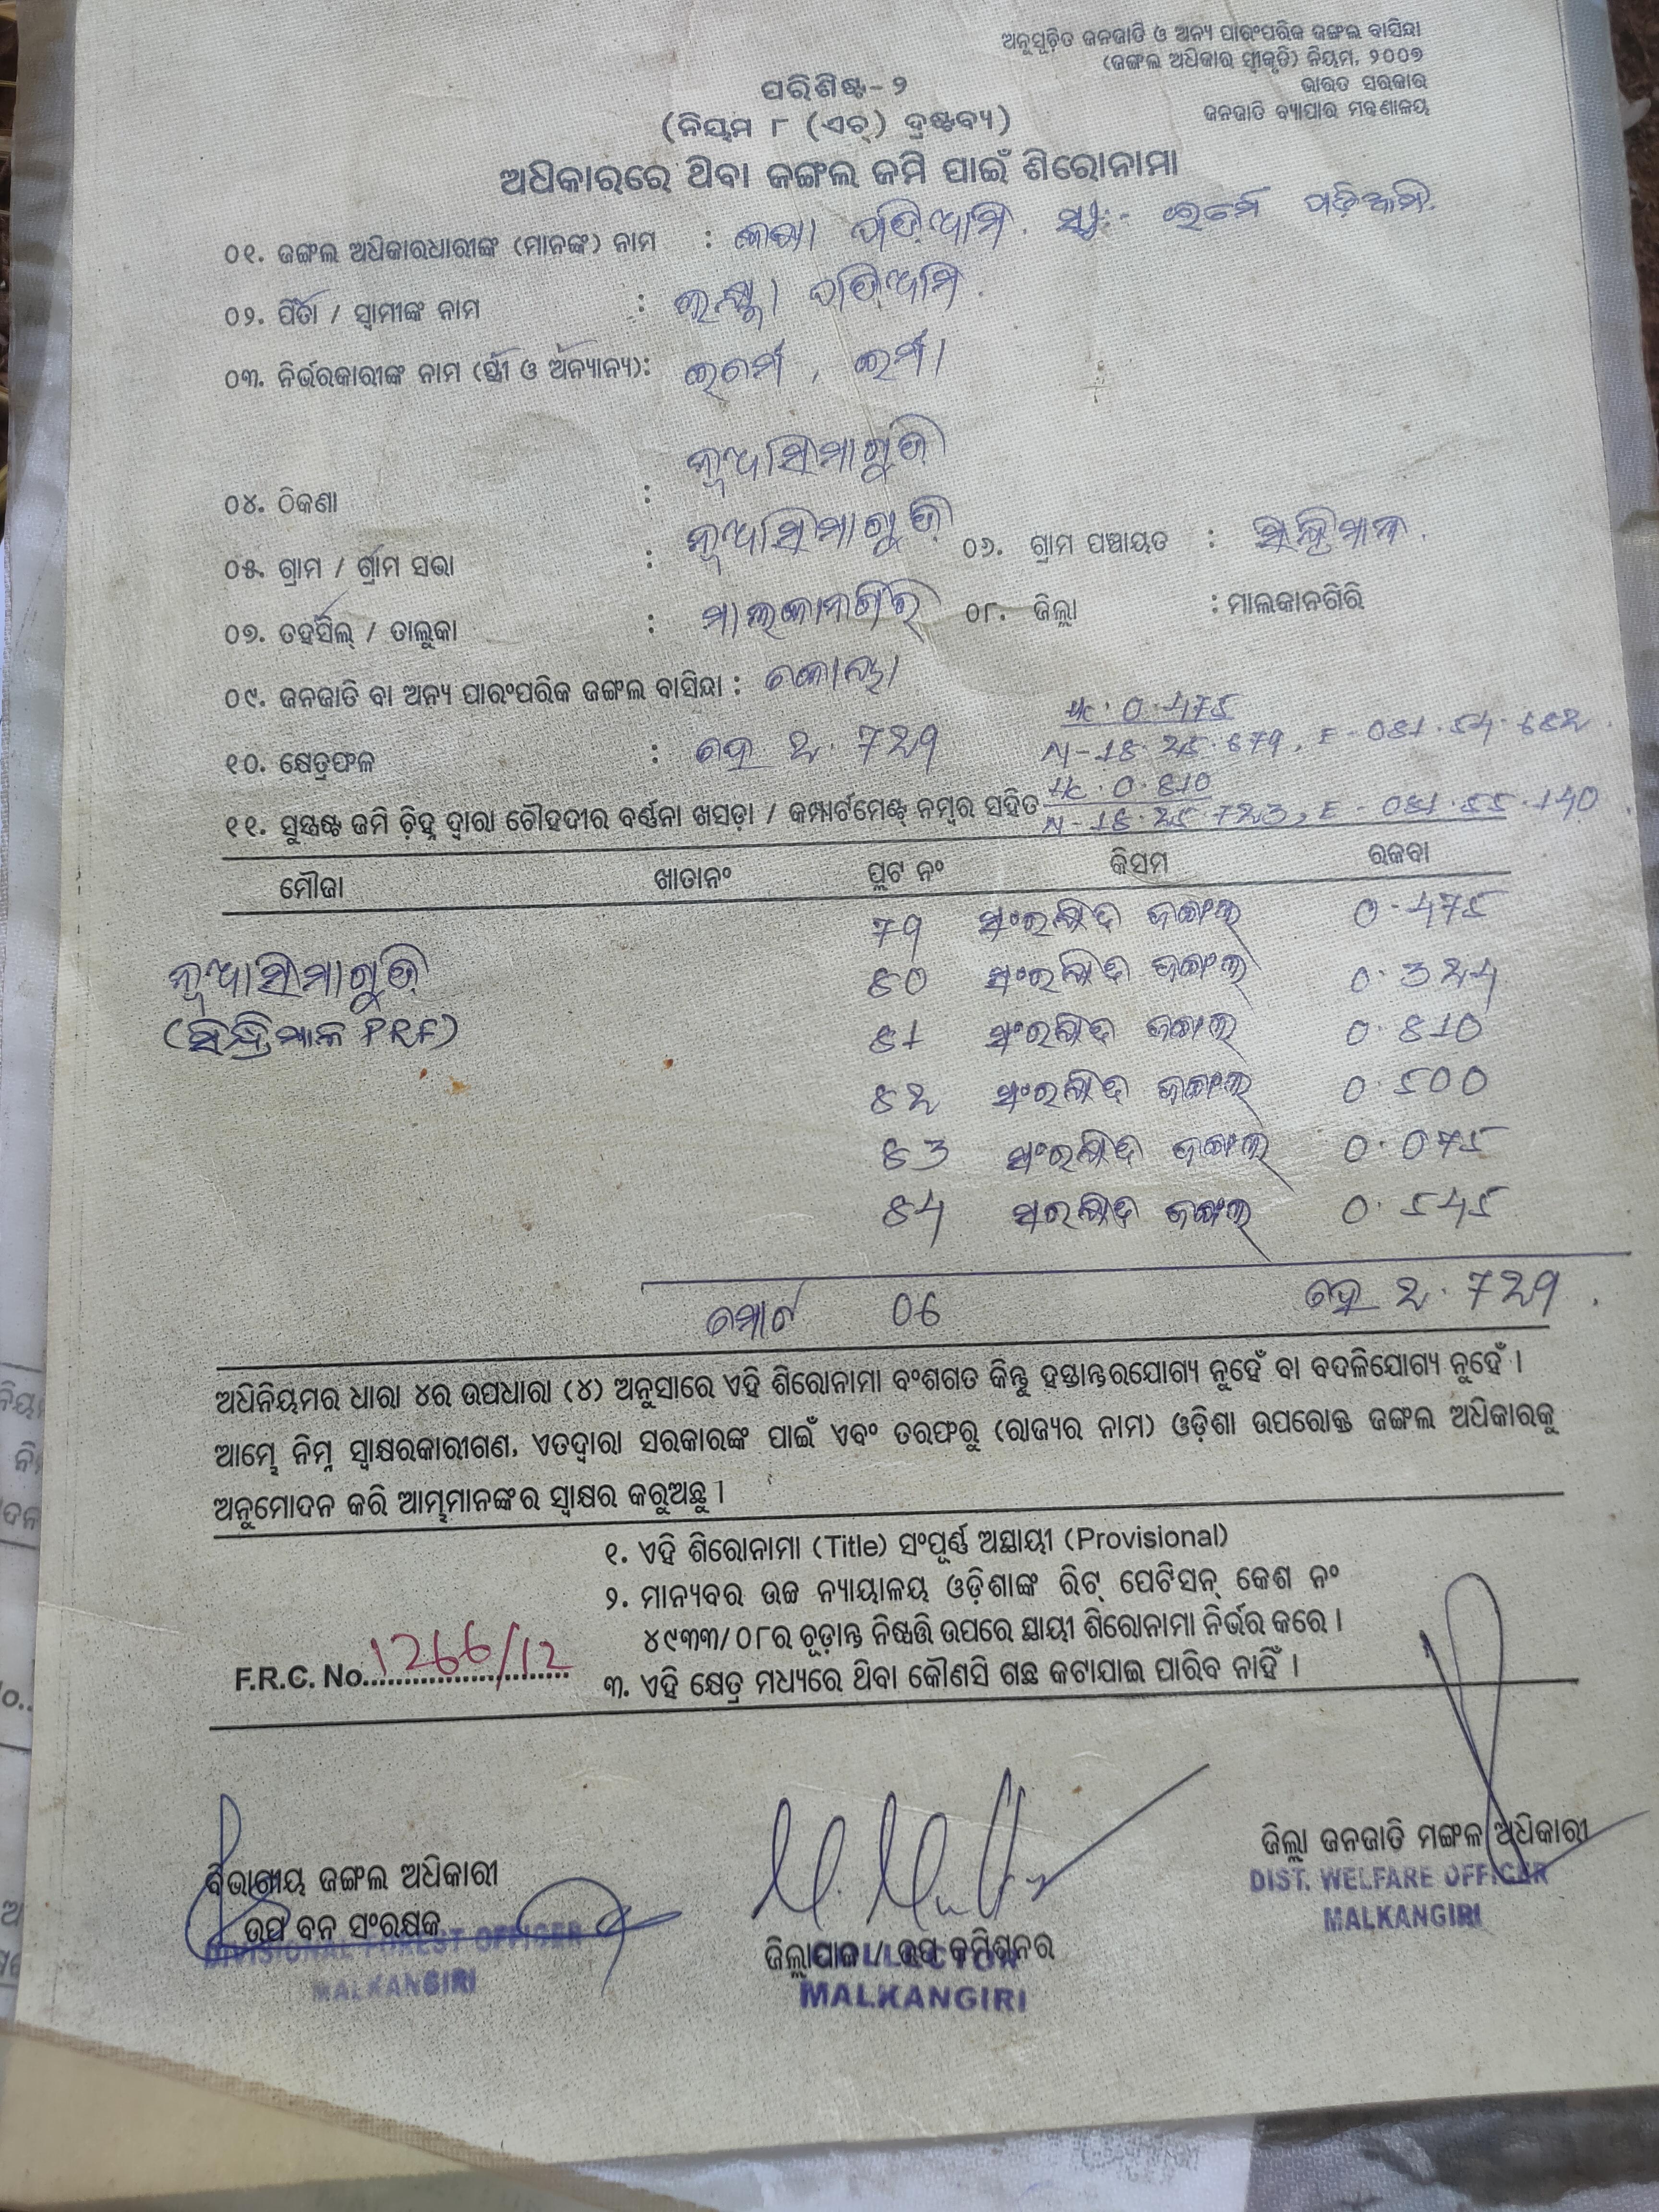 ଅନୁସୂଚିତ ଜନଜାତି ଓ ଅନ୍ୟ ପାରଂପରିକ ଜଙ୍ଗଲ ବାସିନ୍ଦା
(ଜଙ୍ଗଲ ଅଧିକାର ସ୍ୱୀକୃତି) ନିୟମ, ୨୦୦୭
ଭାରତ ସରକାର
ଜନଜାତି ବ୍ୟାପାର ମନ୍ତ୍ରଣାଳୟ
ପରିଶିଷ୍ଟ-୨
(ନିୟମ ୮ (ଏଚ୍) ଦ୍ରଷ୍ଟବ୍ୟ)
ଅଧିକାରରେ ଥିବା ଜଙ୍ଗଲ ଜମି ପାଇଁ ଶିରୋନାମା
୦୧. ଜଙ୍ଗଲ ଅଧିକାରଧାରୀଙ୍କ (ମାନଙ୍କ) ନାମ : ପଡ଼ିଆମି
୦୨. ପିତା / ସ୍ୱାମୀଙ୍କ ନାମ : ପଡ଼ିଆମି
୦୩. ନିର୍ଭରକାରୀଙ୍କ ନାମ (ସ୍ତ୍ରୀ ଓ ଅନ୍ୟାନ୍ୟ):
୦୪. ଠିକଣା : ନୂଆସିମାଗୁଡ଼ି
୦୫. ଗ୍ରାମ / ଗ୍ରାମ ସଭା : ନୂଆସିମାଗୁଡ଼ି ୦୬. ଗ୍ରାମ ପଞ୍ଚାୟତ : ସିନ୍ଦ୍ରିମାଳ
୦୭. ତହସିଲ୍ / ତାଲୁକା : ମାଲକାନଗିରି ୦୮. ଜିଲ୍ଲା : ମାଲକାନଗିରି
୦୯. ଜନଜାତି ବା ଅନ୍ୟ ପାରଂପରିକ ଜଙ୍ଗଲ ବାସିନ୍ଦା : କୋୟା
Hc. 0.475
୧୦. କ୍ଷେତ୍ରଫଳ : ହେ 2.729 N-18.25.679, E-081.54.682
Hc. 0.810
୧୧. ସୁସ୍ପଷ୍ଟ ଜମି ଚିହ୍ନ ଦ୍ୱାରା ଚୌହଦୀର ବର୍ଣ୍ଣନା ଖସଡ଼ା / କମ୍ପାର୍ଟମେଣ୍ଟ ନମ୍ବର ସହିତ N-18.25.723, E-081.55.140
ମୌଜା ଖାତାନଂ ପ୍ଲଟ ନଂ କିସମ ରକବା
79 ସଂରକ୍ଷିତ ଜଙ୍ଗଲ 0.475
ନୂଆସିମାଗୁଡ଼ି 80 ସଂରକ୍ଷିତ ଜଙ୍ଗଲ 0.324
(ସିନ୍ଦ୍ରିମାଳ PRF) 81 ସଂରକ୍ଷିତ ଜଙ୍ଗଲ 0.810
82 ସଂରକ୍ଷିତ ଜଙ୍ଗଲ 0.500
83 ସଂରକ୍ଷିତ ଜଙ୍ଗଲ 0.075
84 ସଂରକ୍ଷିତ ଜଙ୍ଗଲ 0.545
ମୋଟ 06 ହେ 2.729
ଅଧିନିୟମର ଧାରା ୪ର ଉପଧାରା (୪) ଅନୁସାରେ ଏହି ଶିରୋନାମା ବଂଶଗତ କିନ୍ତୁ ହସ୍ତାନ୍ତରଯୋଗ୍ୟ ନୁହେଁ ବା ବଦଳିଯୋଗ୍ୟ ନୁହେଁ ।
ଆମ୍ଭେ ନିମ୍ନ ସ୍ୱାକ୍ଷରକାରୀଗଣ, ଏତଦ୍ୱାରା ସରକାରଙ୍କ ପାଇଁ ଏବଂ ତରଫରୁ (ରାଜ୍ୟର ନାମ) ଓଡ଼ିଶା ଉପରୋକ୍ତ ଜଙ୍ଗଲ ଅଧିକାରକୁ
ଅନୁମୋଦନ କରି ଆମ୍ଭମାନଙ୍କର ସ୍ୱାକ୍ଷର କରୁଅଛୁ ।
୧. ଏହି ଶିରୋନାମା (Title) ସଂପୂର୍ଣ୍ଣ ଅସ୍ଥାୟୀ (Provisional)
୨. ମାନ୍ୟବର ଉଚ୍ଚ ନ୍ୟାୟାଳୟ ଓଡ଼ିଶାଙ୍କ ରିଟ୍ ପେଟିସନ୍ କେଶ ନଂ
୪୯୩୩/୦୮ର ଚୂଡ଼ାନ୍ତ ନିଷ୍ପତ୍ତି ଉପରେ ସ୍ଥାୟୀ ଶିରୋନାମା ନିର୍ଭର କରେ ।
F.R.C. No. 1266/12
୩. ଏହି କ୍ଷେତ୍ର ମଧ୍ୟରେ ଥିବା କୌଣସି ଗଛ କଟାଯାଇ ପାରିବ ନାହିଁ ।
ବିଭାଗୀୟ ଜଙ୍ଗଲ ଅଧିକାରୀ
ଉପ ବନ ସଂରକ୍ଷକ
DIVISIONAL FOREST OFFICER
MALKANGIRI
ଜିଲ୍ଲାପାଳ / ଉପ କମିଶନର
COLLECTOR
MALKANGIRI
ଜିଲ୍ଲା ଜନଜାତି ମଙ୍ଗଳ ଅଧିକାରୀ
DIST. WELFARE OFFICER
MALKANGIRI